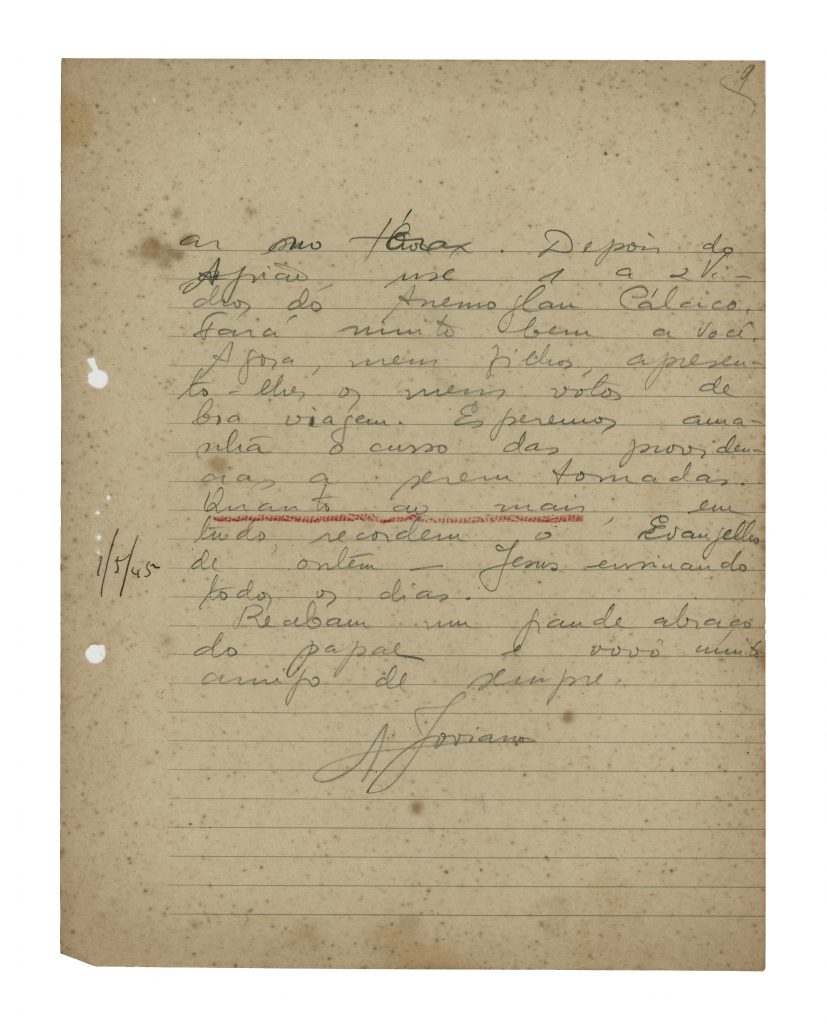 9
ar no tórax. Depois do
Agrião, use 1 a 2 vi-
dros do Anemoglan Cálcico.
Fará muito bem a você.
Agora, meus filhos, apresen-
to-lhes os meus votos de
boa viagem. Esperemos ama-
nhã o curso das providen-
cias a serem tomadas.
Quanto ao mais, em
tudo recordem o Evangelho
de ontem – Jesus ensinando
1/5/45
todos os dias.
Recebam um grande abraço
do papae e vovô muito
amigo de sempre.
A Joviano